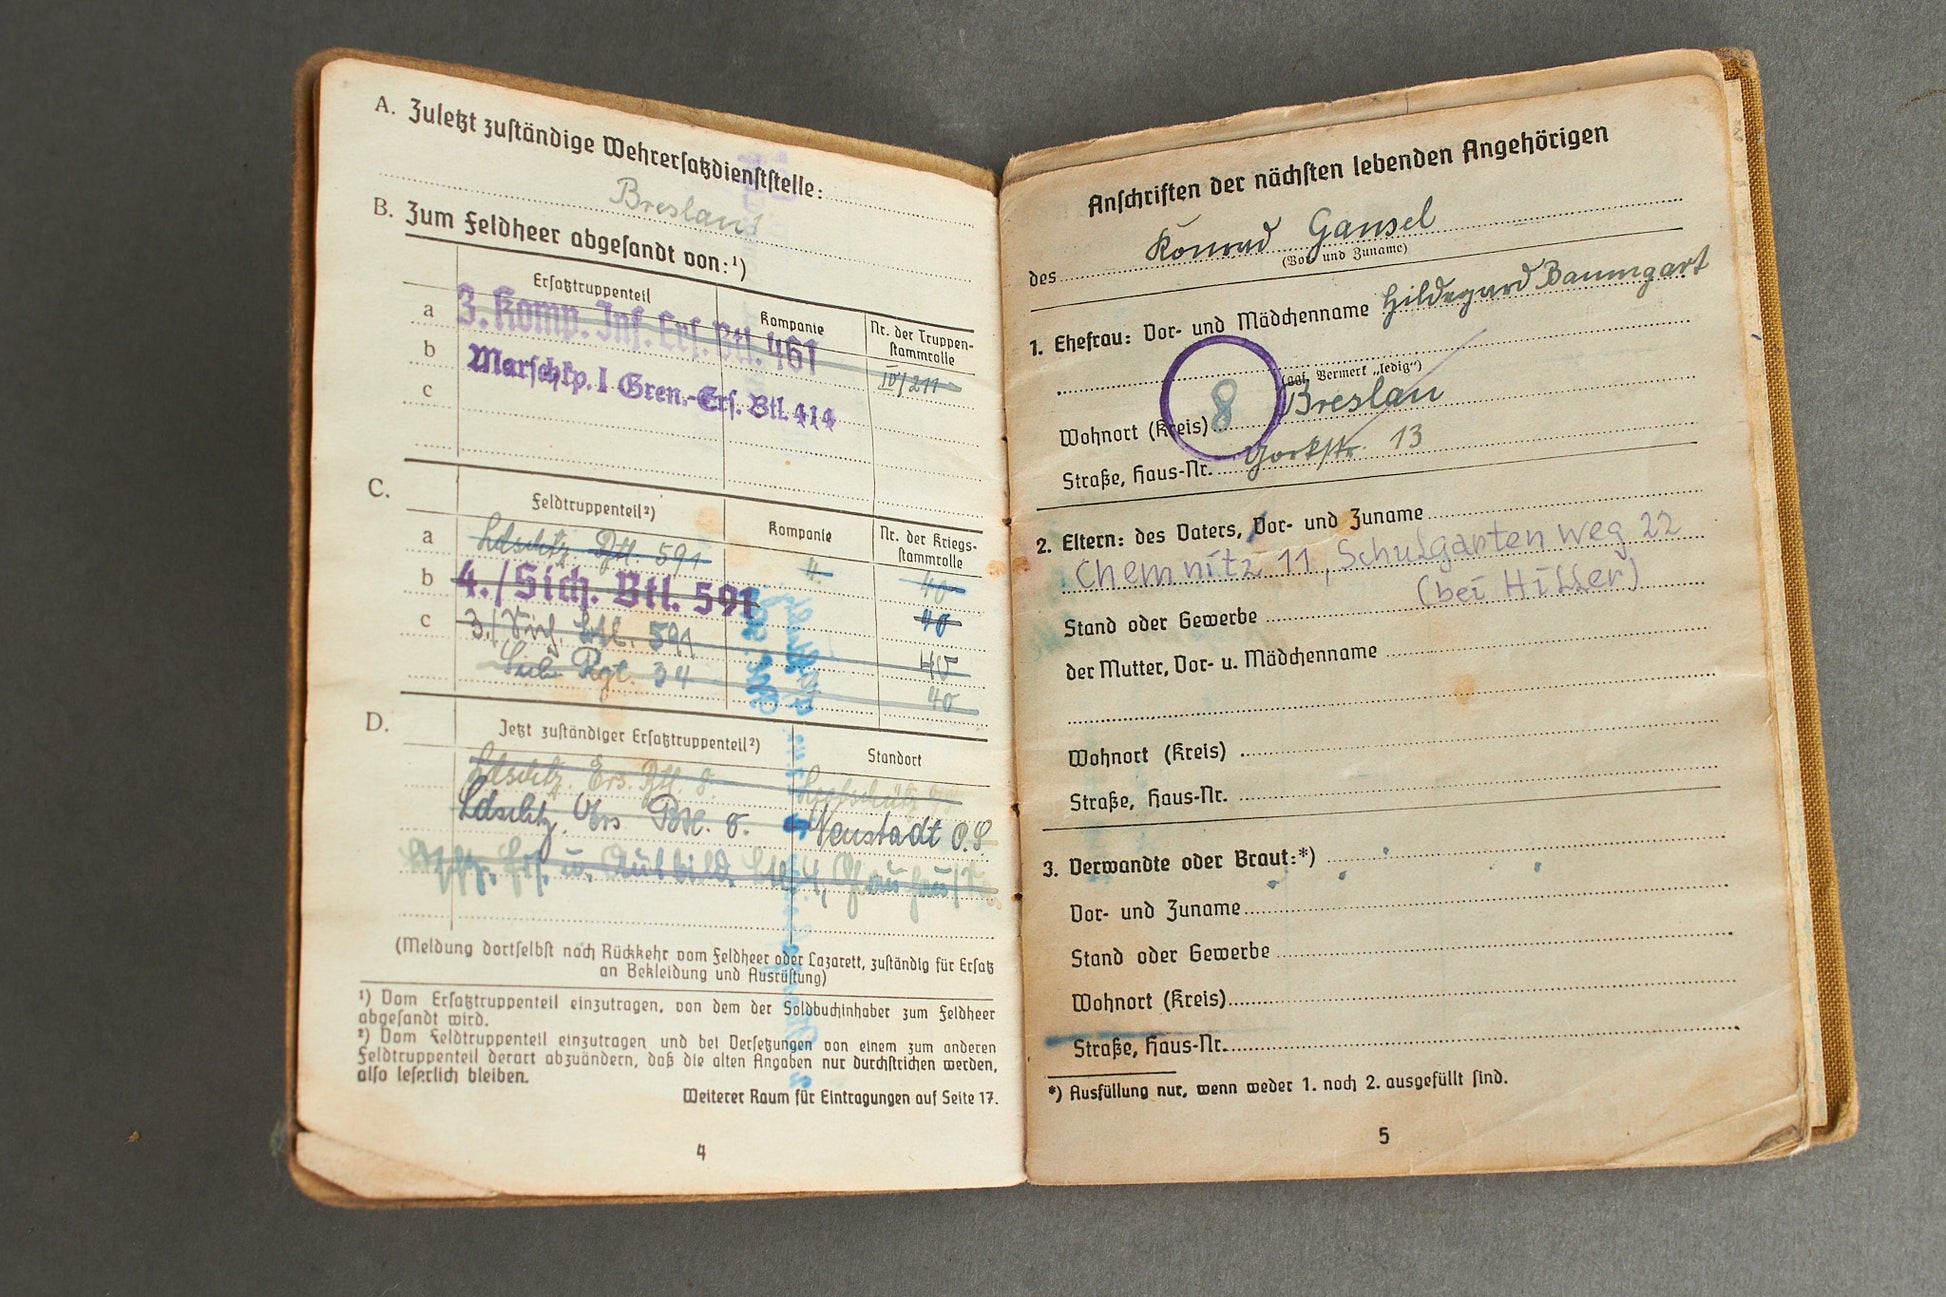 A. Zuletzt zuständige Wehrersatzdienststelle:
Breslau 1
B. Zum Feldheer abgesandt von:¹)
Ersatztruppenteil Kompanie Nr. der Truppen-
stammrolle
a 3. Komp. Inf. Ers. Btl. 461 IV/211
b Marschkp. I Gren.-Ers. Btl. 414
c
C. Feldtruppenteil²) Kompanie Nr. der Kriegs-
stammrolle
a Ldsschtz. Btl. 591 4. 40
b 4./Sich. Btl. 591 40
c 3./Sich. Btl. 591 40
Sich. Rgt. 34 40
D. Jetzt zuständiger Ersatztruppenteil²) Standort
Ldsschtz. Ers. Btl. 8.
Ldsschtz. Ers. Btl. 8. Neustadt O.S.
Ers. u. Ausbild.
(Meldung dortselbst nach Rückkehr vom Feldheer oder Lazarett, zuständig für Ersatz
an Bekleidung und Ausrüstung)
¹) Vom Ersatztruppenteil einzutragen, von dem der Soldbuchinhaber zum Feldheer
abgesandt wird.
²) Vom Feldtruppenteil einzutragen und bei Versetzungen von einem zum anderen
Feldtruppenteil derart abzuändern, daß die alten Angaben nur durchstrichen werden,
also leserlich bleiben.
Weiterer Raum für Eintragungen auf Seite 17.
4
Anschriften der nächsten lebenden Angehörigen
des Konrad Gansel
(Vor- und Zuname)
1. Ehefrau: Vor- und Mädchenname Hildegard Baumgart
(ggf. Vermerk „ledig“)
Wohnort (Kreis) 8 Breslau
Straße, Haus-Nr. Yorkstr. 13
2. Eltern: des Vaters, Vor- und Zuname
Chemnitz 11, Schulgarten weg 22
(bei Hiller)
Stand oder Gewerbe
der Mutter, Vor- u. Mädchenname
Wohnort (Kreis)
Straße, Haus-Nr.
3. Verwandte oder Braut:*)
Vor- und Zuname
Stand oder Gewerbe
Wohnort (Kreis)
Straße, Haus-Nr.
*) Ausfüllung nur, wenn weder 1. noch 2. ausgefüllt sind.
5